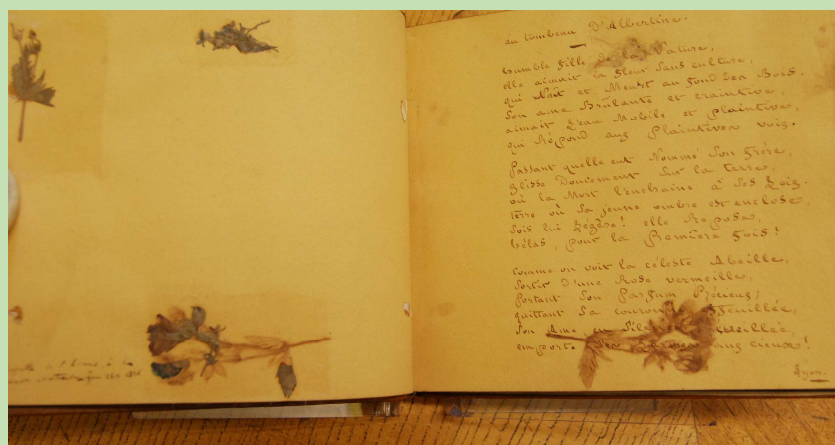 au tombeau D'Albertine.
humble fille de la Nature,
elle aimait la fleur Sans culture,
qui Nait et Meurt au fond Des Bois.
Son ame Brûlante et craintive,
aimait l'eau Mobile et plaintive,
qui Répond aux Plaintives voix.
Passant quelle eut Nommé Son frère,
glisse Doucement Sur la terre,
où la Mort l'enchaine à Ses Loix.
terre où Sa jeune ombre est enclose,
Sois lui Légère! elle Repose,
hélas, pour la Première fois!
comme on voit la céleste Abeille,
Sortir D'une Rose vermeille,
Portant Son Parfum Précieux;
quittant Sa couronne effeuillée,
Son Ame, en Silence
emporte aux cieux!
Lyon.